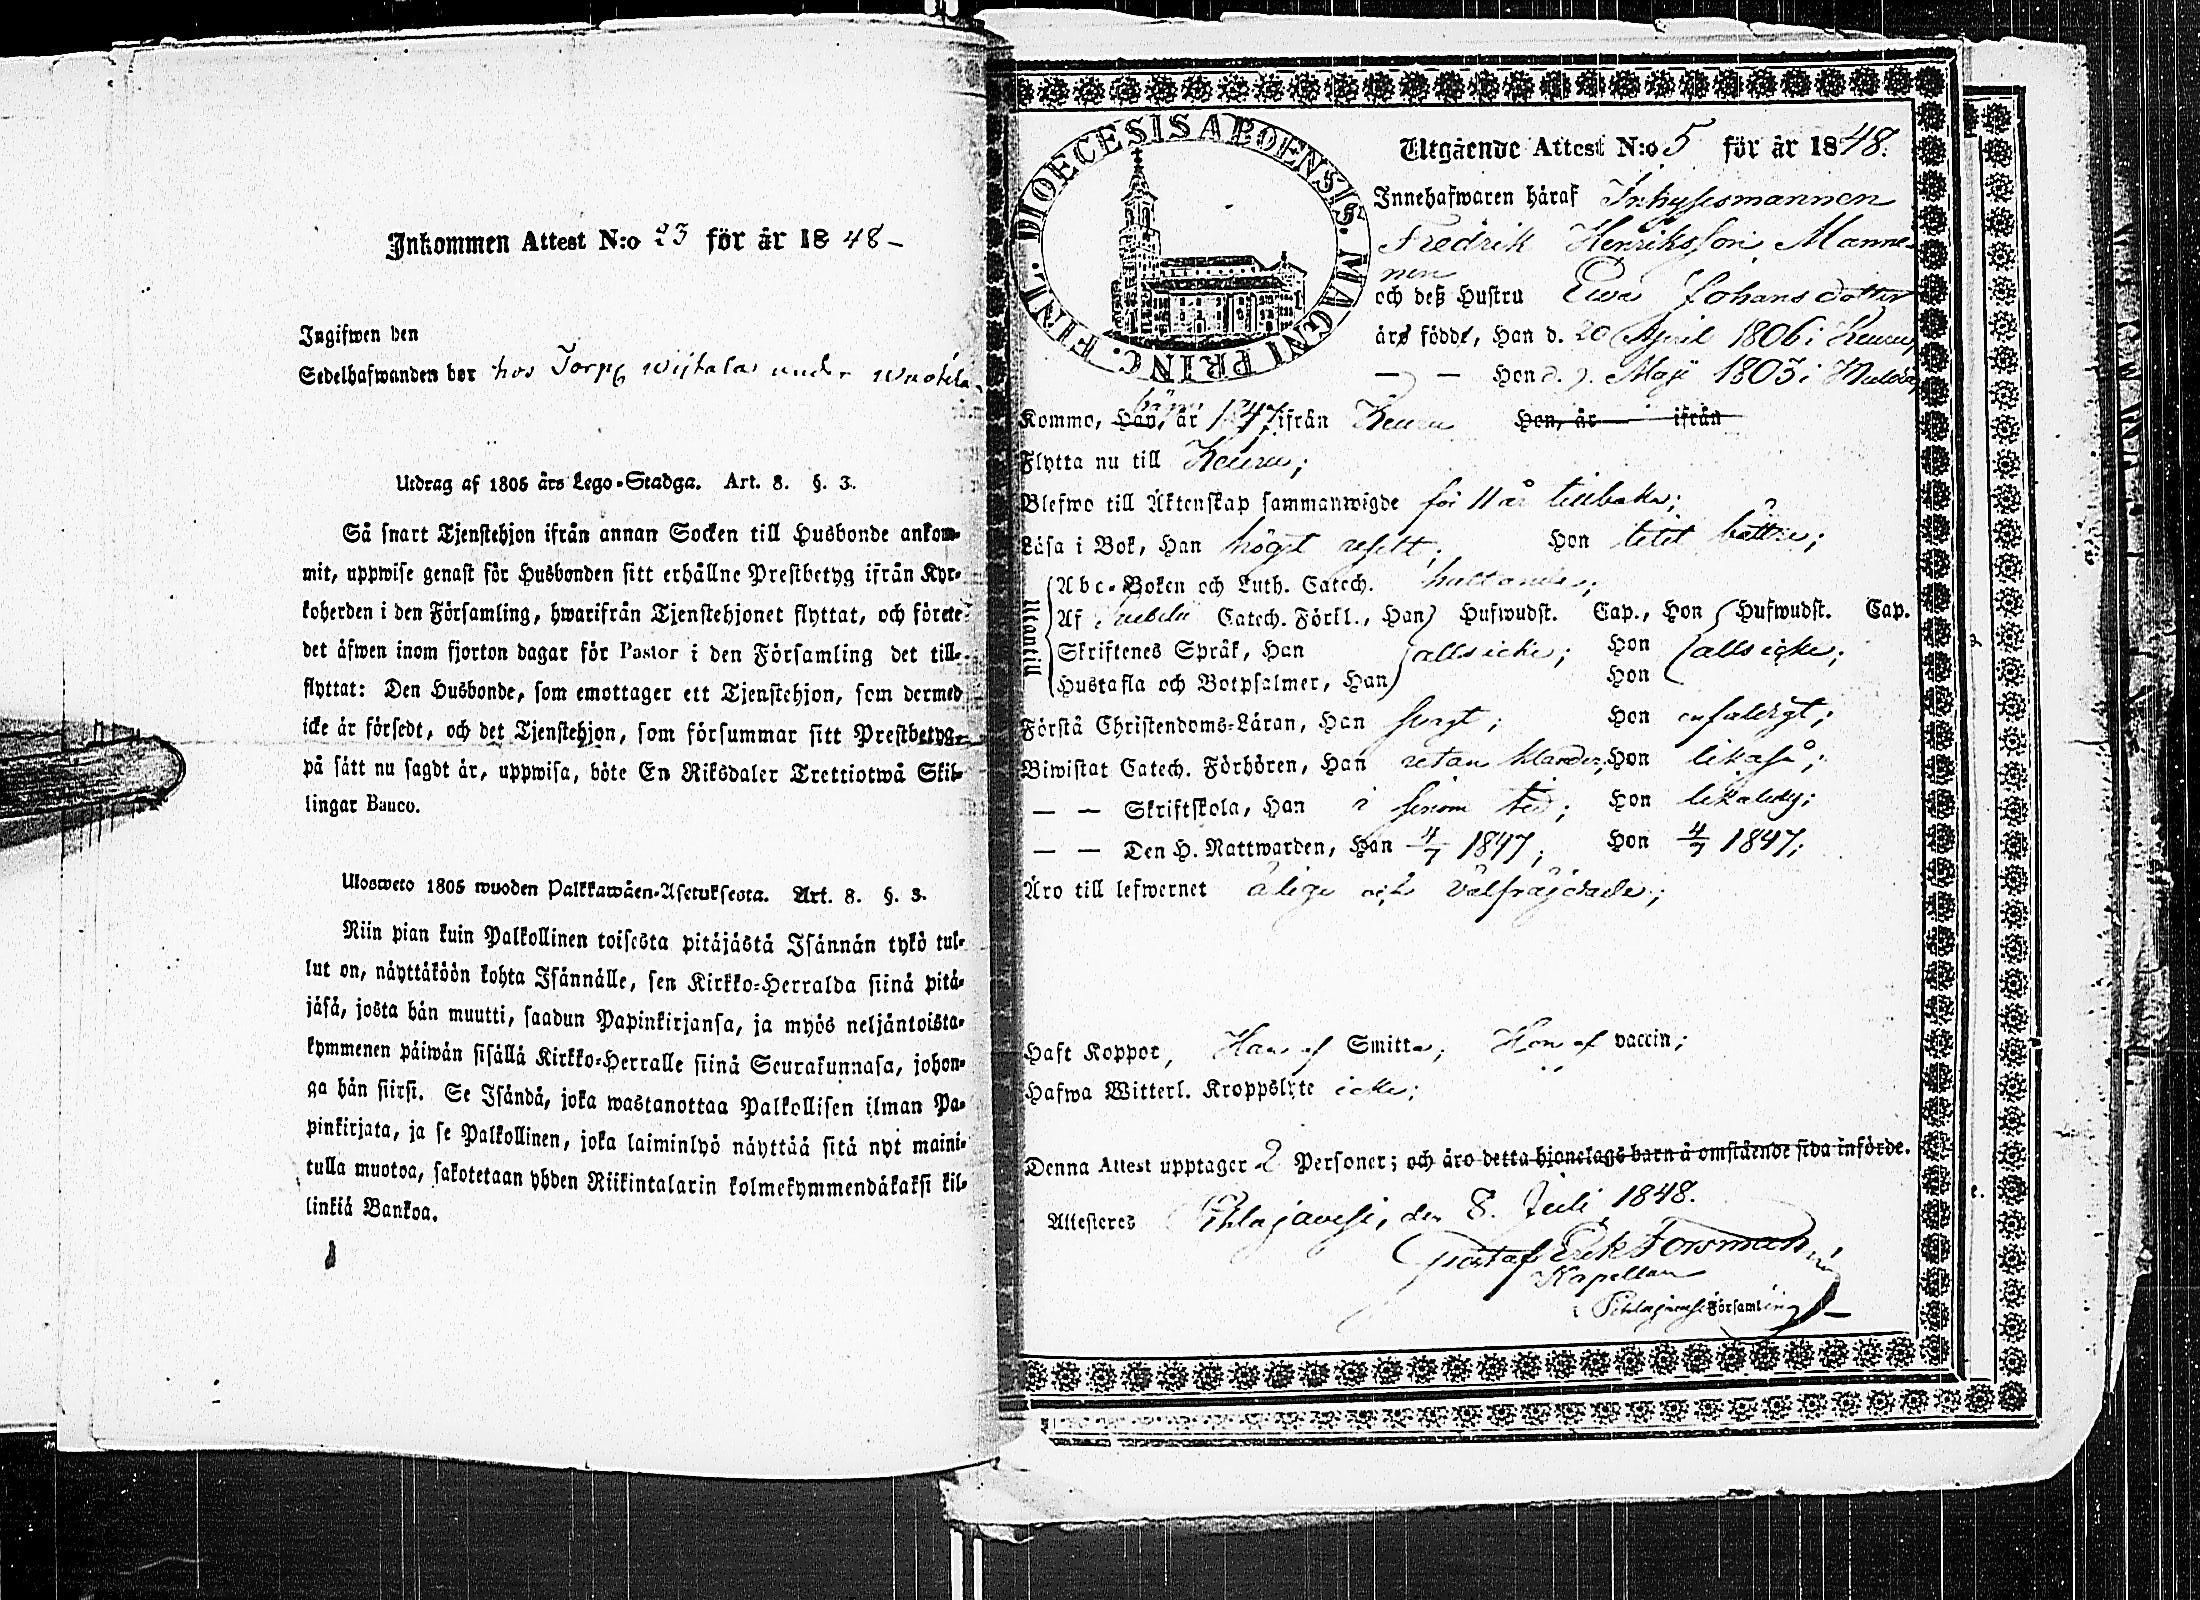 Inkommen Attest N:o 23 för år 1848 –
Ingifwen den
Sedelhafwanden bor hos Torp. Wijtala under
Utdrag af 1805 års Lego-Stadga. Art. 8. §. 3.
Så snart Tjenstehjon ifrån annan Socken till Husbonde ankom-
mit, uppwise genast för Husbonden sitt erhållne Prestbetyg ifrån Kyr-
koherden i den Församling, hwarifrån Tjenstehjonet flyttat, och förete
det äfwen inom fjorton dagar för Pastor i den Församling det till-
flyttat: Den Husbonde, som emottager ett Tjenstehjon, som dermed
icke är försedt, och det Tjenstehjon, som försummar sitt Prestbetyg,
på sätt nu sagdt är, uppwisa, böte En Riksdaler Trettiotwå Skil-
lingar Banco.
Ulosweto 1805 wuoden Palkkawäen-Asetuksesta. Art. 8. §. 3.
Niin pian kuin Palkollinen toisesta pitäjästä Isännän tykö tul-
lut on, näyttäköön kohta Isännälle, sen Kirkko-Herralda siinä pitä-
jäsä, josta hän muutti, saadun Papinkirjansa, ja myös neljäntoista-
kymmenen päiwän sisällä Kirkko-Herralle siinä Seurakunnasa, johon-
ga hän siirsi. Se Isändä, joka wastanottaa Palkollisen ilman Pa-
pinkirjata, ja se Palkollinen, joka laiminlyö näyttää sitä nyt maini-
tulla muotoa, sakotetaan yhden Riikintalarin kolmekymmendäkaksi kil-
linkiä Bankoa.
DIOECESIS ABOENSIS. MAGNI PRINC. FINL.
Utgående Attest N:o 5 för år 1848.
Innehafwaren häraf Inhysesmannen
Fredrik Henriksson Manne-
nen
och deß Hustru Ewa Johansdotter
års födde, Han d. 20 April 1806 i Keuru,
— — Hon d. 7. Maji 1803 i
Kommo, Han, år 1847 ifrån Keuru Hon, år — ifrån
Flytta nu till Keuru;
Blefwo till Äktenskap sammanwigde för 11 år tillbaka;
Läsa i Bok, Han högst Hon litet bättre;
Utantill
Abc-Boken och Luth. Catech.
Af Catech. Förkl., Han Hufwudst. Cap., Hon Hufwudst. Cap.
Skriftenes Språk, Han alls icke; Hon alls icke;
Hustafla och Botpsalmer, Han Hon
Förstå Christendoms-Läran, Han swagt; Hon enfaldigt;
Biwistat Catech. Förhören, Han utan klander; Hon likaså;
— — Skriftskola, Han i sinom tid; Hon likaledes;
— — Den H. Nattwarden, Han 4/7 1847; Hon 4/7 1847;
Äro till lefwernet ärlige och välfräjdade;
Haft Koppor, Han af Smitta; Hon af vaccin;
Hafwa Witterl. Kroppslyte icke;
Denna Attest upptager 2 Personer; och äro detta hjonelags barn å omstående sida införde.
Attesteres Pihlajavesi, den 8. Juli 1848.
Gustaf Erik Forsman
Kapellan
i Pihlajavesi Församling